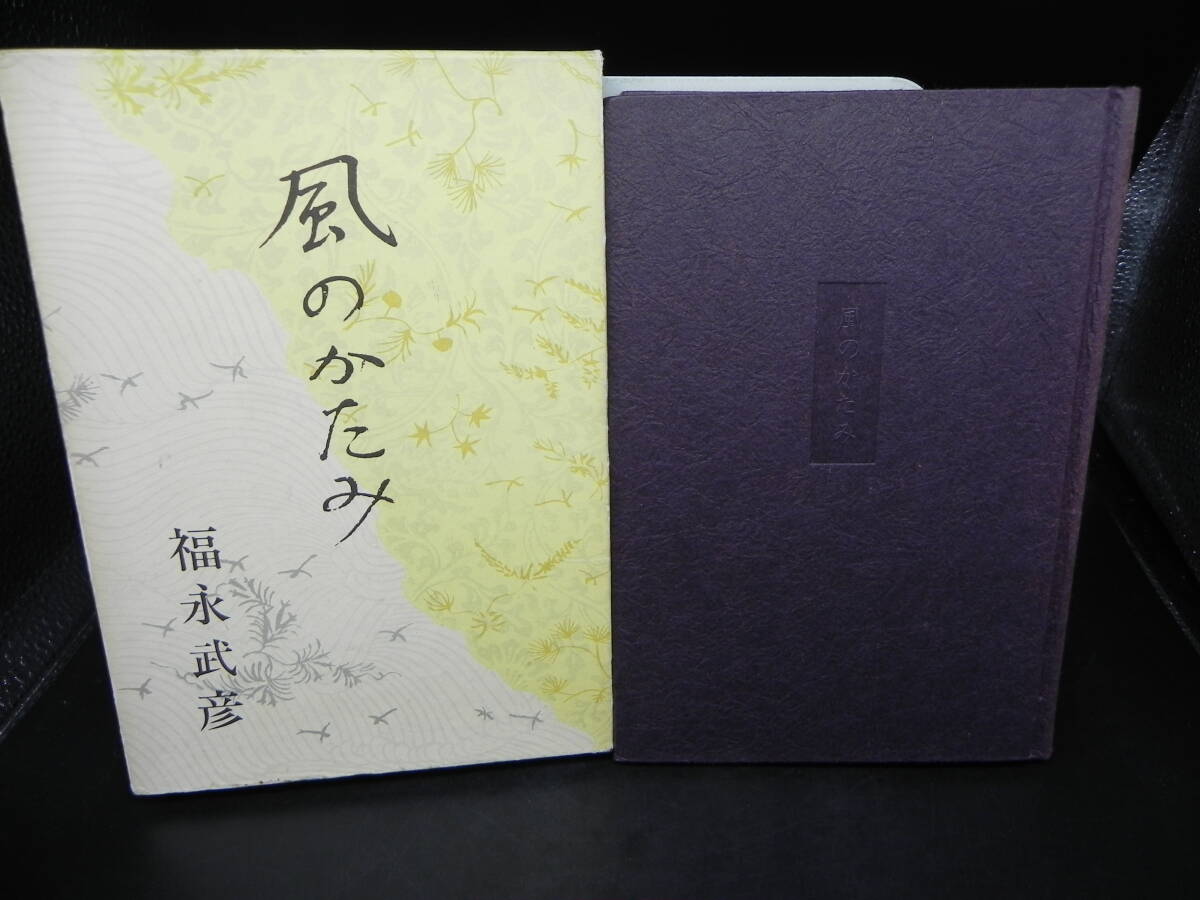 風のかたみ
福永武彦
風のかたみ